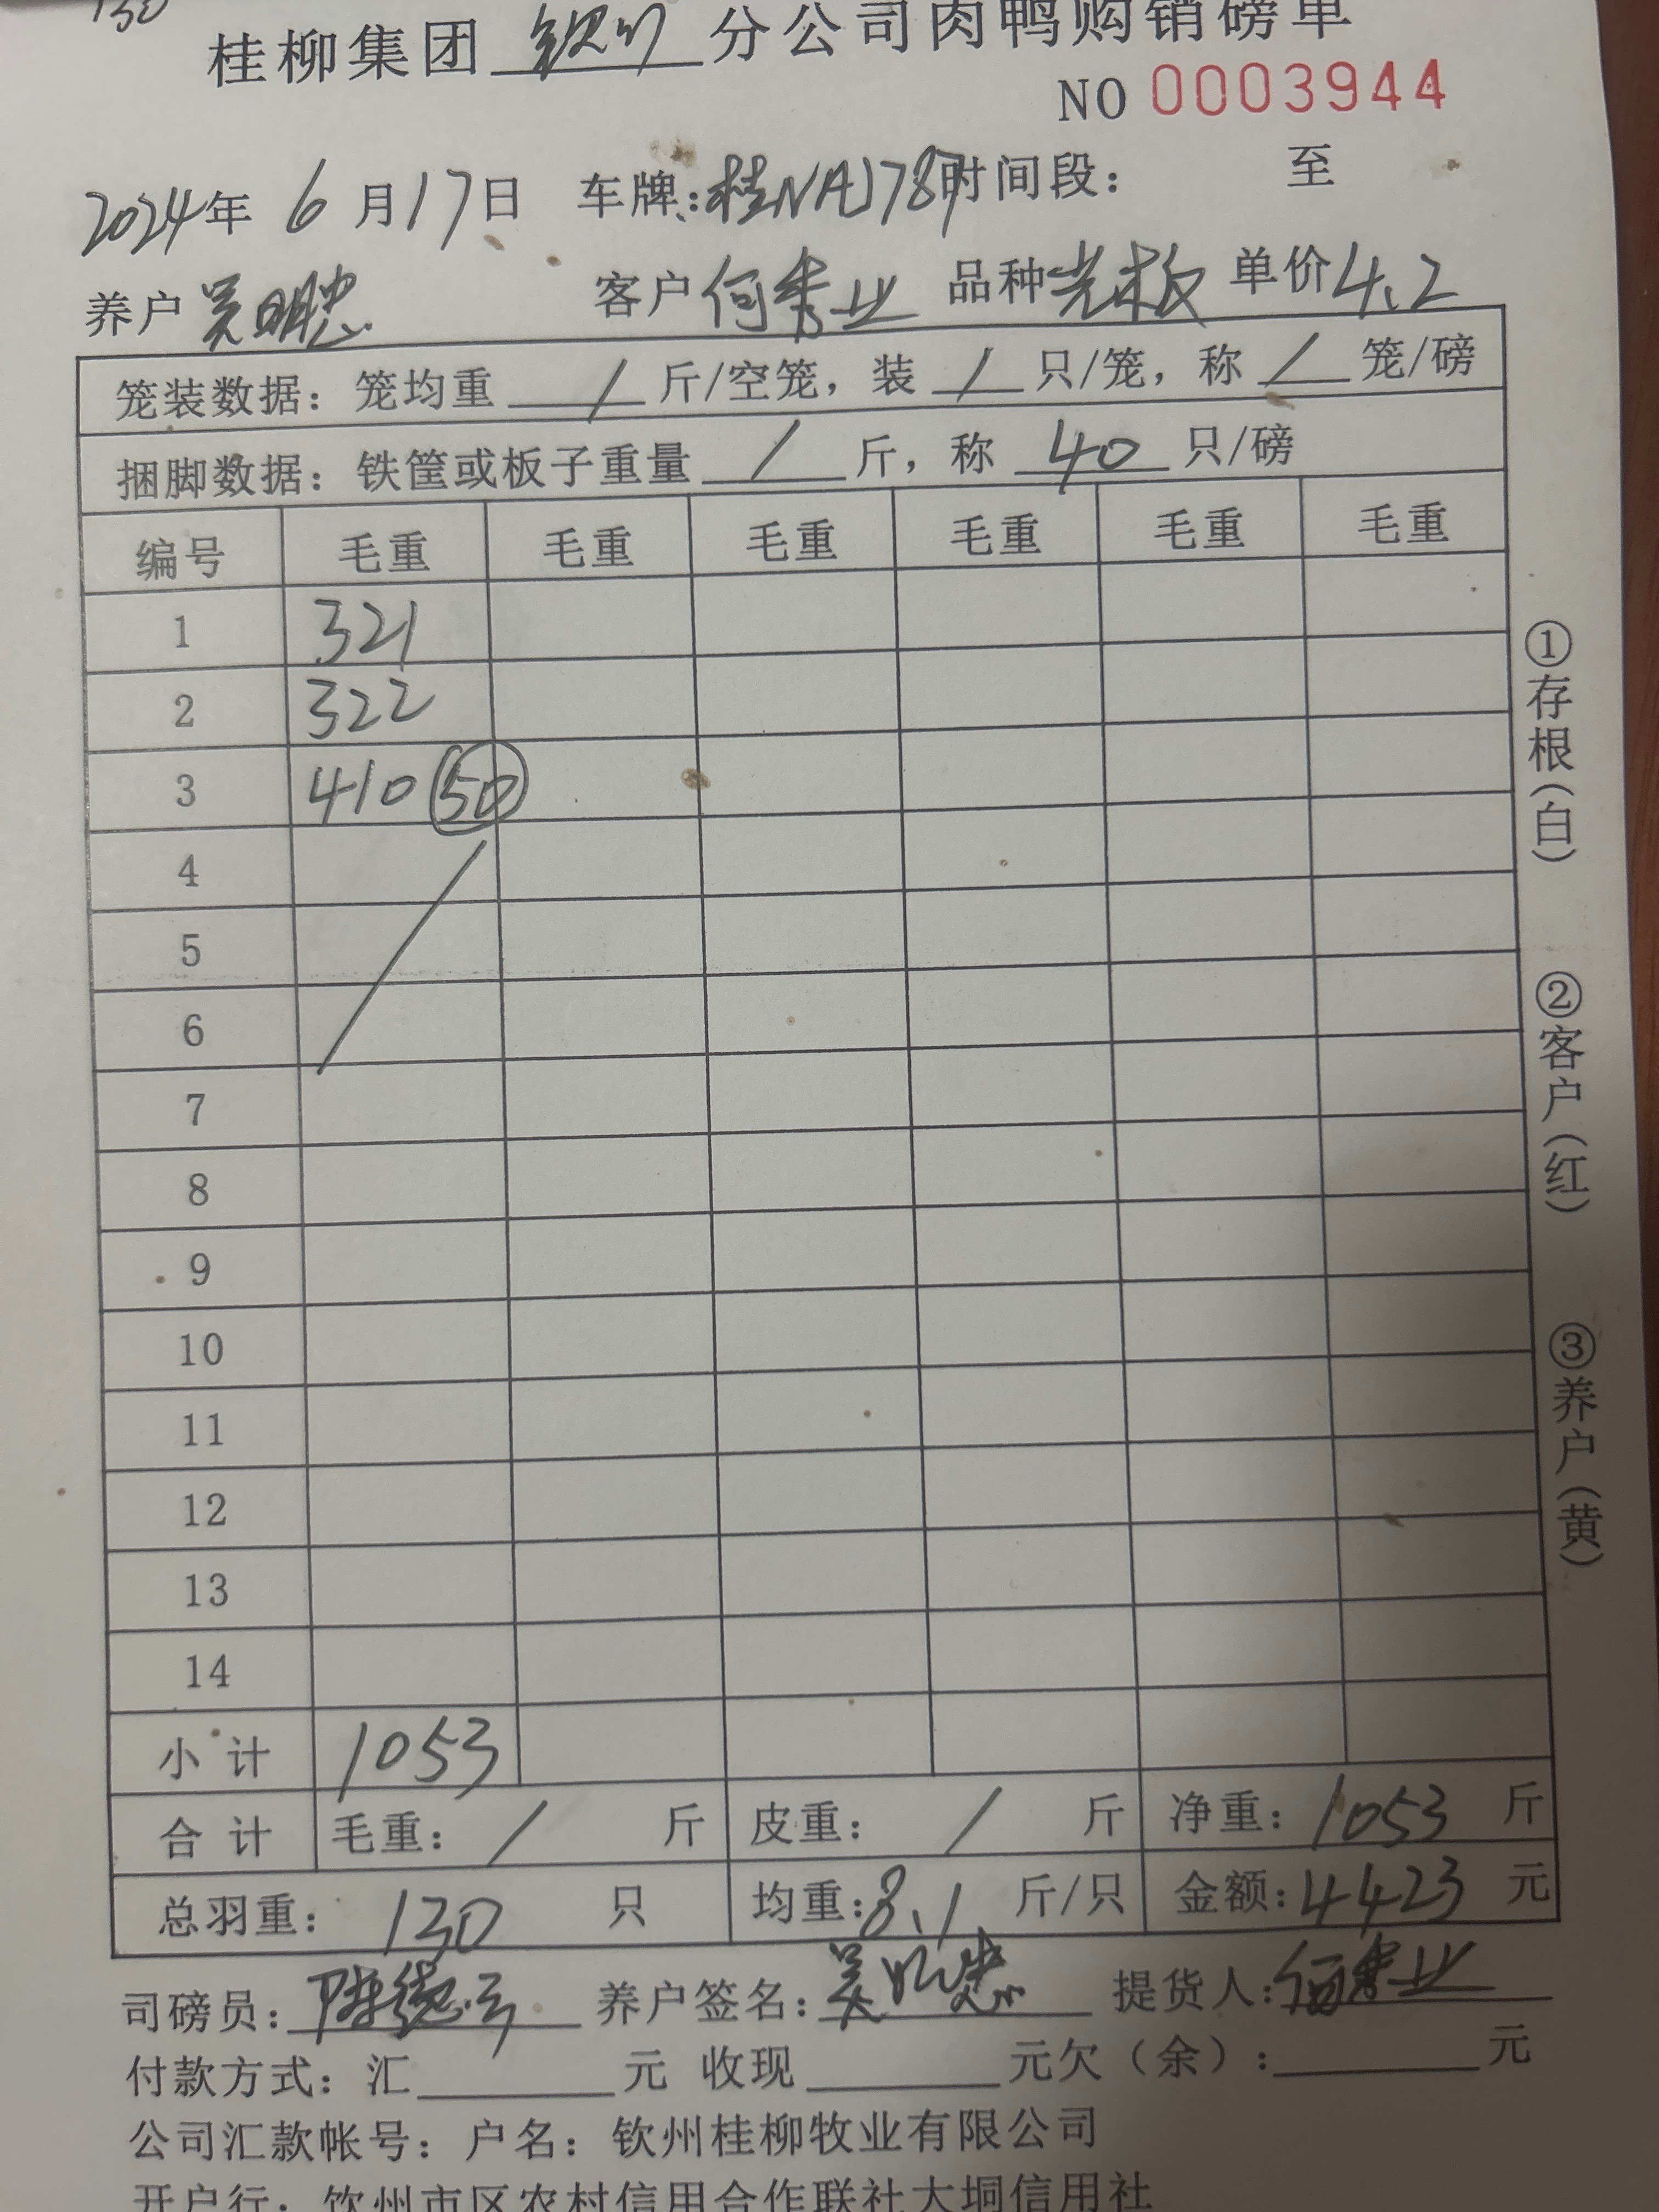 130
桂柳集团 钦州 分公司肉鸭购销磅单
NO 0003944
2024年 6月17日 车牌:桂NAJ787 时间段: 至
养户 吴明忠 客户 何秀业 品种 光板 单价 4.2
笼装数据: 笼均重 / 斤/空笼, 装 / 只/笼, 称 / 笼/磅
捆脚数据: 铁筐或板子重量 / 斤, 称 40 只/磅
编号 毛重 毛重 毛重 毛重 毛重 毛重
1 321
2 322
3 410 50
4
5
6
7
8
9
10
11
12
13
14
小计 1053
合计 毛重: / 斤 皮重: / 斤 净重: 1053 斤
总羽重: 130 只 均重: 8.1 斤/只 金额: 4423 元
司磅员: 陈德云 养户签名: 吴明忠 提货人: 何秀业
付款方式: 汇 元 收现 元欠(余): 元
公司汇款帐号: 户名: 钦州桂柳牧业有限公司
开户行: 钦州市区农村信用合作联社大垌信用社
①存根(白) ②客户(红) ③养户(黄)